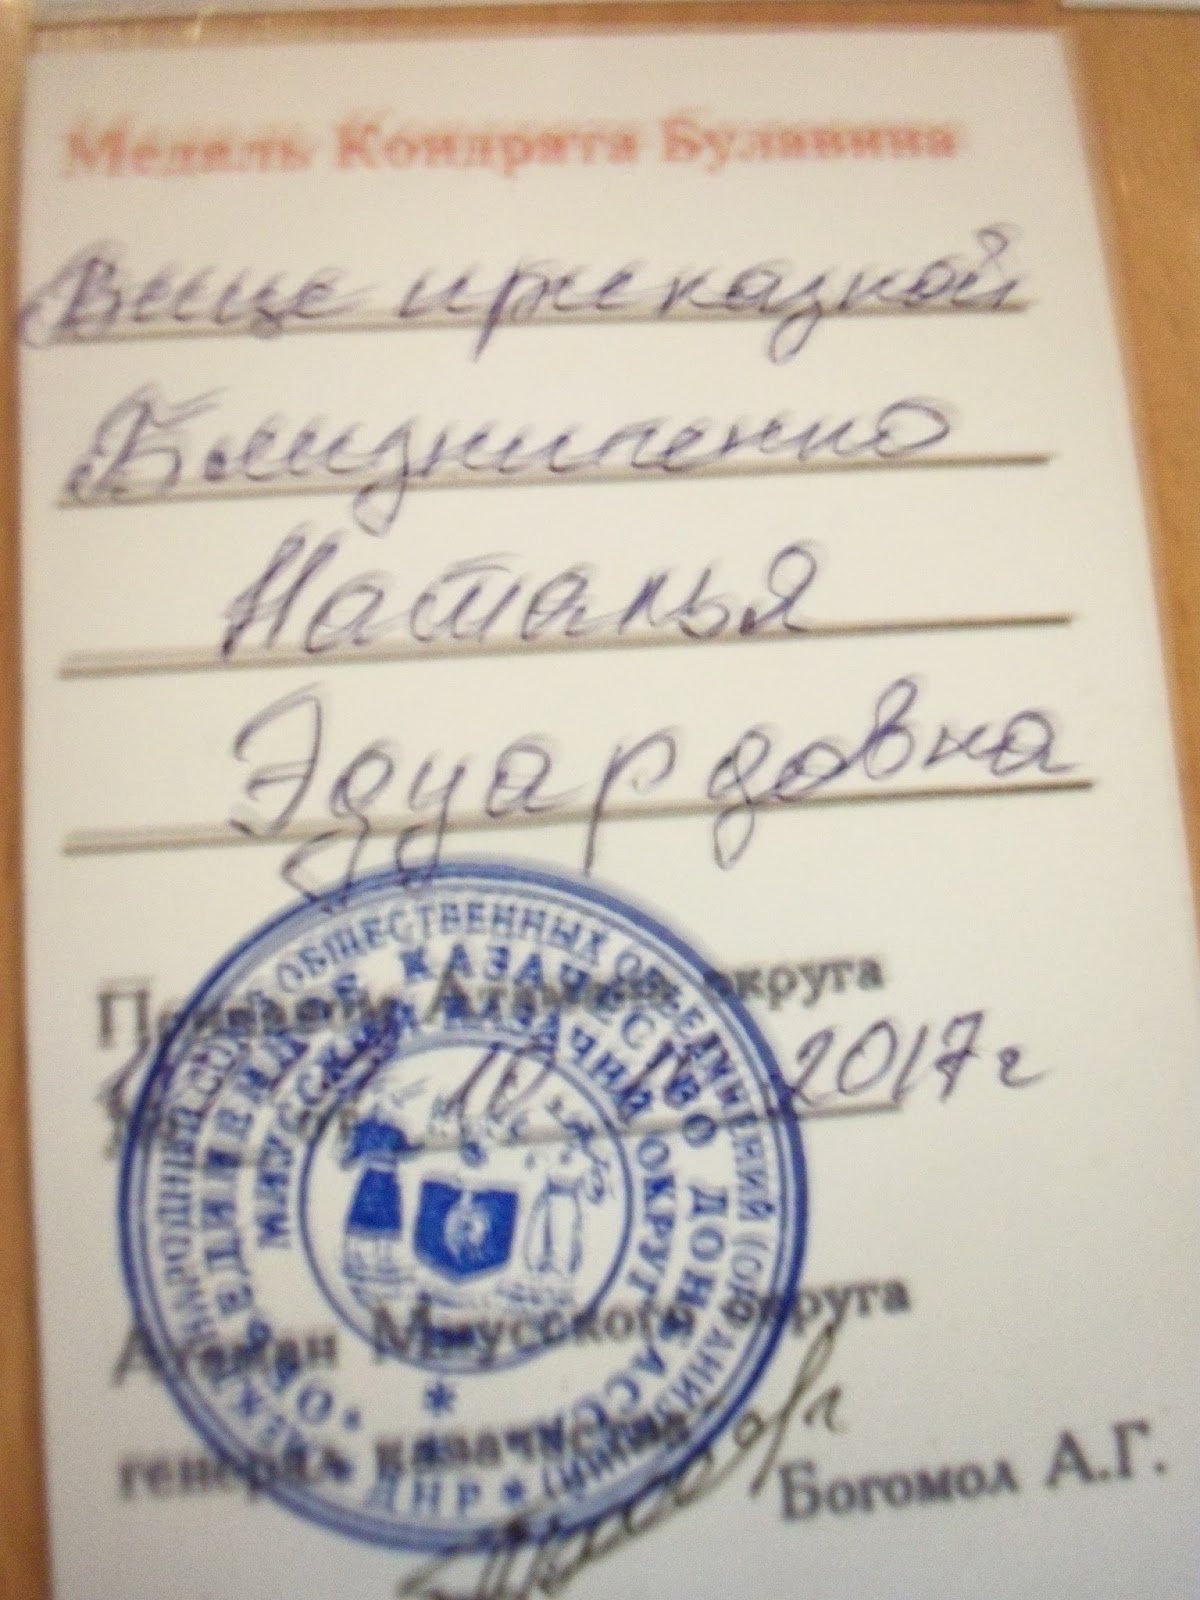 Медаль Кондрата Булавина
Вице приказной
Близниченко
Наталья
Эдуардовна
Приказ Атамана округа
10 2017г
Атаман Миусского округа
генерал казачества
Богомол А.Г.
МЕЖДУНАРОДНЫЙ СОЮЗ ОБЩЕСТВЕННЫХ ОБЪЕДИНЕНИЙ (ОРГАНИЗАЦИЙ)
КАЗАЧЕСТВО ДОНБАССА
МИУССКИЙ КАЗАЧИЙ ОКРУГ
ДНР